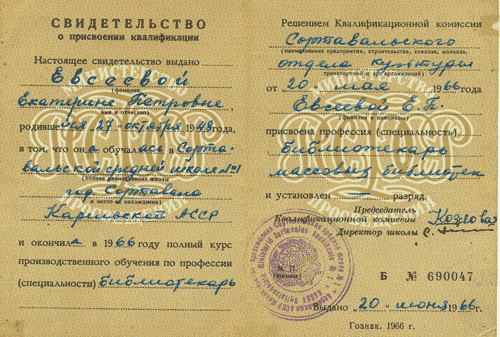 СВИДЕТЕЛЬСТВО
о присвоении квалификации
Настоящее свидетельство выдано
Евсеевой
(фамилия
Екатерине Петровне,
имя и отчество)
родившейся 27 октября 1948 года,
в том, что она обучалась в Сорта-
вальской средней школе №1
(полное наименование школы
год Сортавала
и место ее нахождения)
Карельской АССР
и окончила в 1966 году полный курс
производственного обучения по профессии
(специальности) библиотекарь
Решением Квалификационной комиссии
Сортавальского
(наименование предприятия, строительства, совхоза, колхоза,
отдела культуры
транспортной и др. организаций)
от 20 мая 1966 года
Евсеевой Е.П.
(фамилия и инициалы)
присвоена профессия (специальность)
библиотекарь
массовых библиотек
и установлен — разряд.
Председатель
Квалификационной комиссии
Директор школы
М. П.
(школы)
Б № 690047
Выдано 20 июня 1966
Гознак. 1966 г.